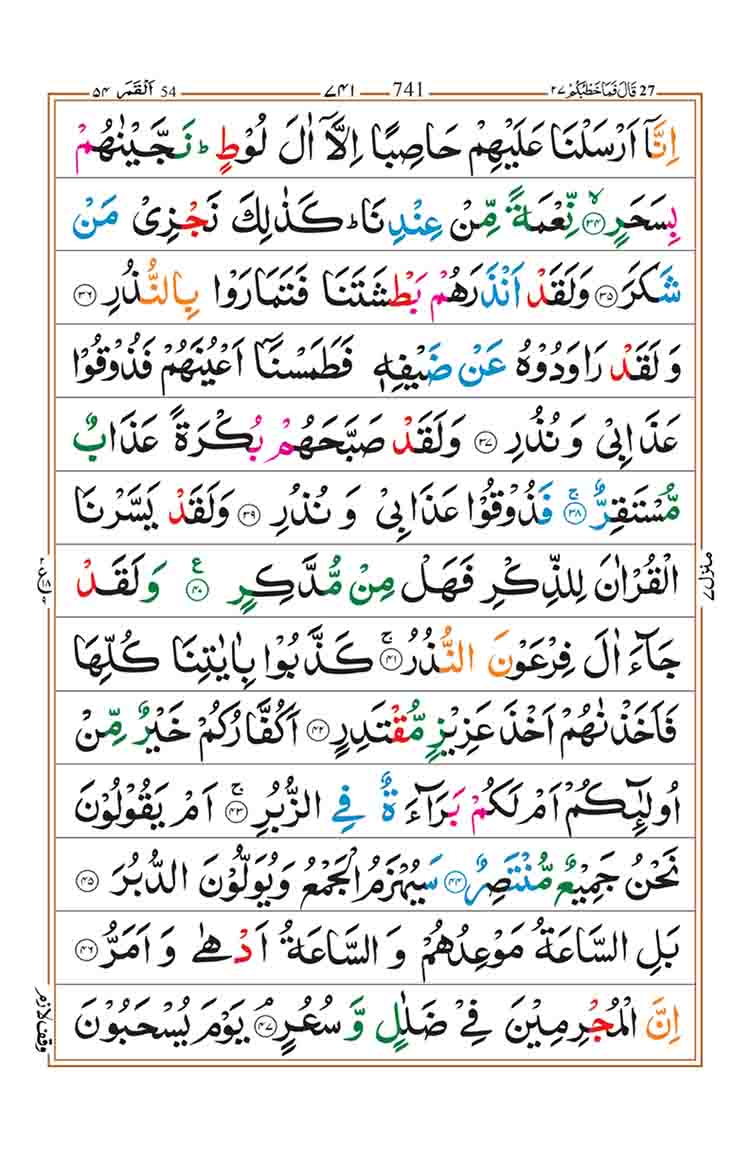 ٥٤ اَلْقَمَر 54 ٧٤١ 741 ٢٧ قَالَ فَمَا خَطْبُكُمْ 27
اِنَّاۤ اَرْسَلْنَا عَلَيْهِمْ حَاصِبًا اِلَّاۤ اٰلَ لُوْطٍ ؕ نَجَّيْنٰهُمْ
بِسَحَرٍ ۙ﴿٣٤﴾ نِّعْمَةً مِّنْ عِنْدِنَا ؕ كَذٰلِكَ نَجْزِىْ مَنْ
شَكَرَ ﴿٣٥﴾ وَلَقَدْ اَنْذَرَهُمْ بَطْشَتَنَا فَتَمَارَوْا بِالنُّذُرِ ﴿٣٦﴾
وَلَقَدْ رَاوَدُوْهُ عَنْ ضَيْفِهٖ فَطَمَسْنَاۤ اَعْيُنَهُمْ فَذُوْقُوْا
عَذَابِىْ وَنُذُرِ ﴿٣٧﴾ وَلَقَدْ صَبَّحَهُمْ بُكْرَةً عَذَابٌ
مُّسْتَقِرٌّ ۚ﴿٣٨﴾ فَذُوْقُوْا عَذَابِىْ وَنُذُرِ ﴿٣٩﴾ وَلَقَدْ يَسَّرْنَا
الْقُرْاٰنَ لِلذِّكْرِ فَهَلْ مِنْ مُّدَّكِرٍ ﴿٤٠﴾ ع وَلَقَدْ
جَآءَ اٰلَ فِرْعَوْنَ النُّذُرُ ۚ﴿٤١﴾ كَذَّبُوْا بِاٰيٰتِنَا كُلِّهَا
فَاَخَذْنٰهُمْ اَخْذَ عَزِيْزٍ مُّقْتَدِرٍ ﴿٤٢﴾ اَكُفَّارُكُمْ خَيْرٌ مِّنْ
اُولٰٓئِكُمْ اَمْ لَكُمْ بَرَآءَةٌ فِى الزُّبُرِ ۚ﴿٤٣﴾ اَمْ يَقُوْلُوْنَ
نَحْنُ جَمِيْعٌ مُّنْتَصِرٌ ﴿٤٤﴾ سَيُهْزَمُ الْجَمْعُ وَيُوَلُّوْنَ الدُّبُرَ ﴿٤٥﴾
بَلِ السَّاعَةُ مَوْعِدُهُمْ وَالسَّاعَةُ اَدْهٰى وَاَمَرُّ ﴿٤٦﴾
اِنَّ الْمُجْرِمِيْنَ فِىْ ضَلٰلٍ وَّسُعُرٍ ۘ﴿٤٧﴾ يَوْمَ يُسْحَبُوْنَ
منزل ٧
وقف لازم